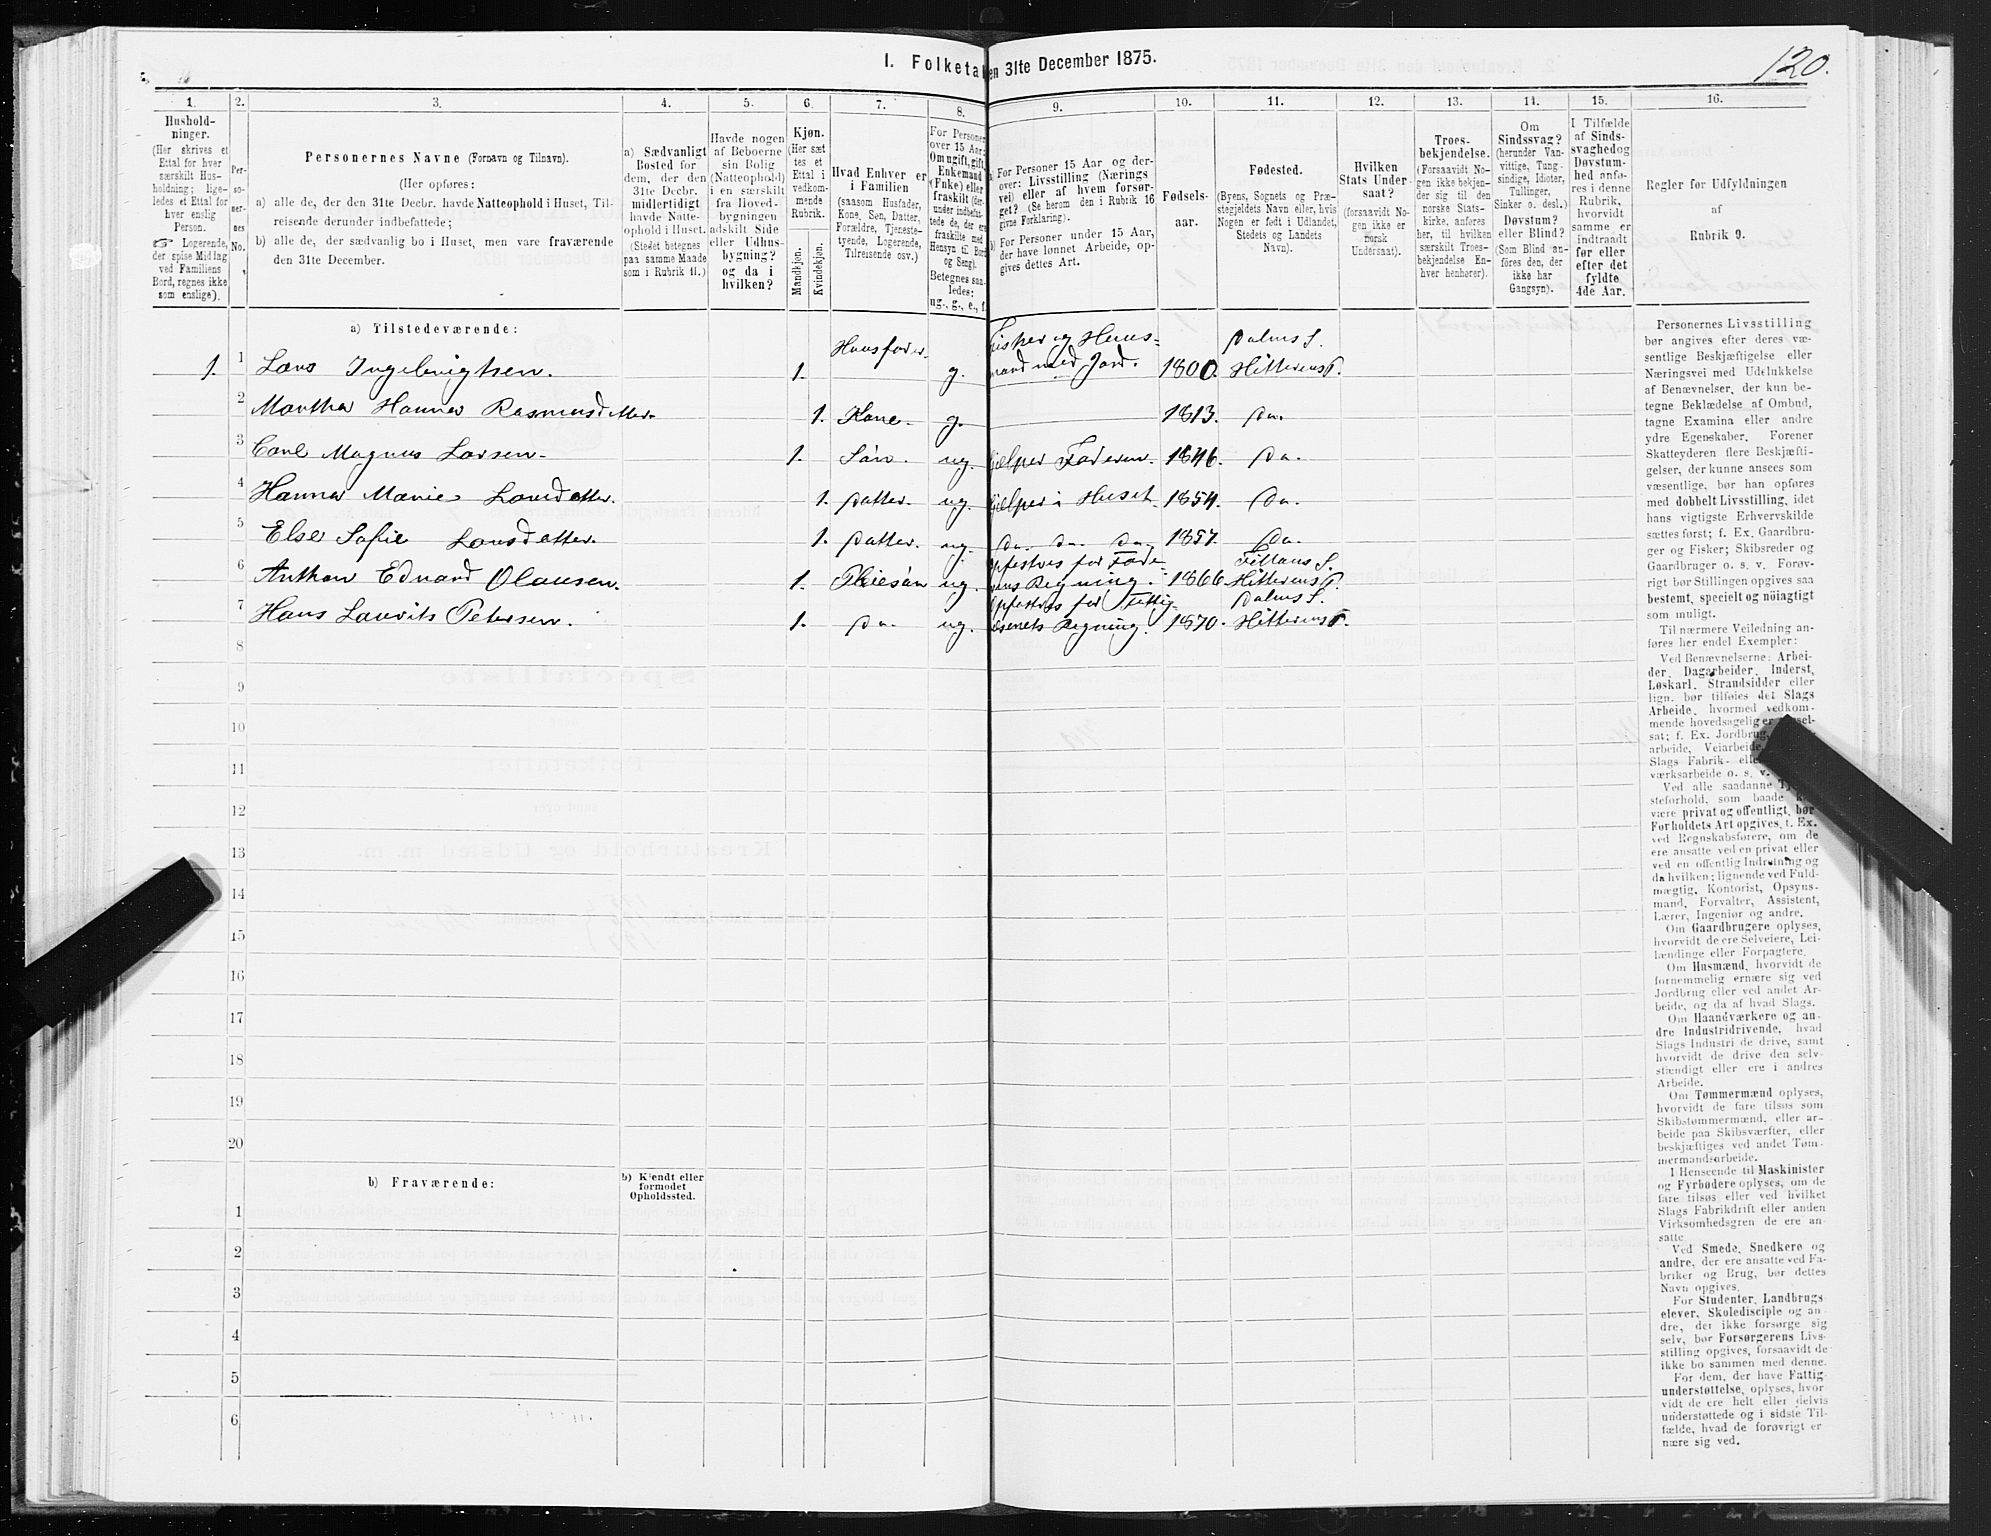 1. Folketal den 31te December 1875.
120.
1. 2. 3. 4. 5. 6. 7. 8. 9. 10. 11. 12. 13. 14. 15. 16.
Hushold-
ninger.
(Her skrives et
Ettal for hver
særskilt Hus-
holdning; lige-
ledes et Ettal for
hver enslig
Person.
☞ Logerende,
der spise Middag
ved Familiens
Bord, regnes ikke
som enslige).
Per-
so-
ner-
nes
No.
Personernes Navne (Fornavn og Tilnavn).
(Her opføres:
a) alle de, der den 31te Decbr. havde Natteophold i Huset, Til-
reisende derunder indbefattede;
b) alle de, der sædvanlig bo i Huset, men vare fraværende
den 31te December.
a) Sædvanligt
Bosted for
dem, der den
31te Decbr.
midlertidigt
havde Natte-
ophold i Huset.
(Stedet betegnes
paa samme Maade
som i Rubrik 11.)
Havde nogen
af Beboerne
sin Bolig
(Natteophold)
i en særskilt
fra Hoved-
bygningen
adskilt Side
eller Udhus-
bygning?
og da i
hvilken?
Kjøn.
(Her sæt
tes et
Ettal i
vedkom-
mende
Rubrik.
Mandkjøn.
Kvindekjøn.
Hvad Enhver er
i Familien
(saasom Husfader,
Kone, Søn, Datter,
Forældre, Tjeneste-
tyende, Logerende,
Tilreisende osv.)
For Personer
over 15 Aar:
Om ugift, gift,
Enkemand
(Enke) eller
fraskilt (der-
under indbefat-
tede de, der ere
fraskilte med
Hensyn til Bord
og Seng).
Betegnes saa-
ledes:
ug., g., e., f.
a) For Personer 15 Aar og der-
over: Livsstilling (Nærings
vei) eller af hvem forsør-
get? (Se herom den i Rubrik 16
givne Forklaring).
b) For Personer under 15 Aar,
der have lønnet Arbeide, op-
gives dettes Art.
Fødsels-
aar.
Fødested.
(Byens, Sognets og Præ-
stegjeldets Navn eller, hvis
Nogen er født i Udlandet,
Stedets og Landets
Navn).
Hvilken
Stats Under
saat?
(forsaavidt No-
gen ikke er
norsk
Undersaat).
Troes-
bekjendelse.
(Forsaavidt No-
gen ikke bekjen-
der sig til den
norske Stats-
kirke, anføres
her, til hvilken
særskilt Troes-
bekjendelse En-
hver henhører).
Om
Sindssvag?
(herunder Van-
vittige, Tung-
sindige, Idioter,
Tullinger,
Sinker o. desl.)
Døvstum?
eller Blind?
(Som Blind an-
føres den, der
ikke har
Gangsyn).
I Tilfælde
af Sinds-
svaghed og
Døvstum-
hed anfø-
res i denne
Rubrik,
hvorvidt
samme er
indtraadt
før eller
efter det
fyldte
4de Aar.
Regler for Udfyldningen
af
Rubrik 9.
a) Tilstedeværende:
1. 1 Lars Ingebrigtsen. 1. Huusfader. g. Fisker og Huus=
mand med Jord. 1800. Dalms S.
Hitterens P.
2 Martha Hanna Rasmusdatter. 1. Kone. g. 1813. Do.
3 Carl Magnus Larsen. 1. Søn. ug. hjælper Faderen. 1846. Do.
4 Hanna Marie Larsdatter. 1. Datter. ug. hjælper i Huset. 1854. Do.
5 Else Sofie Larsdatter. 1. Datter. ug. Do. Do. Do. 1857. Do.
6 Anthon Edvard Olausen. 1. Pleiesøn ug. opfostres for Fade
rens Regning. 1866. Fillans S.
Hitterens P.
7 Hans Laurits Petersen. 1. Do. ug. opfostres for Fattig
væsenets Regning. 1870. Dalms S.
Hitterens P.
8
9
10
11
12
13
14
15
16
17
18
19
20
b) Fraværende:
b) Kjendt eller
formodet
Opholdssted.
1
2
3
4
5
6
Personernes Livsstilling
bør angives efter deres væ-
sentlige Beskjæftigelse eller
Næringsvei med Udelukkelse
af Benævnelser, der kun be-
tegne Beklædelse af Ombud,
tagne Examina eller andre
ydre Egenskaber. Forener
Skatteyderen flere Beskjæfti-
gelser, der kunne ansees som
væsentlige, bør han opføres
med dobbelt Livsstilling, idet
hans vigtigste Erhvervskilde
sættes først; f. Ex. Gaardbru-
ger og Fisker; Skibsreder og
Gaardbruger o. s. v. Forøv-
rigt bør Stillingen opgives saa
bestemt, specielt og nöiagtigt
som muligt.
Til nærmere Veiledning an-
føres her endel Exempler:
Ved Benævnelserne: Arbei-
der, Dagarbeider, Inderst,
Løskarl, Strandsidder eller
lign. bør tilføies det Slags
Arbeide, hvormed vedkom-
mende hovedsagelig er
sat; f. Ex. Jordbrug,
arbeide, Veiarbeide,
Slags Fabrik- eller
værksarbeide o. s. v.
Ved alle saadanne
steforhold, som baade
være privat og offentligt, bør
Forholdets Art opgives, t. Ex.
ved Regnskabsførere, om de
ere ansatte ved en privat eller
ved en offentlig Indretning og
da hvilken; lignende ved Fuld-
mægtig, Kontorist, Opsyns-
mand, Forvalter, Assistent,
Lærer, Ingeniør og andre.
Om Gaardbrugere oplyses,
hvorvidt de ere Selveiere, Lei-
lændinge eller Forpagtere.
Om Husmænd, hvorvidt de
fornemmelig ernære sig ved
Jordbrug eller ved andet Ar-
beide, og da af hvad Slags.
Om Haandværkere og an-
dre Industridrivende, hvad
Slags Industri de drive, samt
hvorvidt de drive den selv-
stændigt eller ere i andres
Arbeide.
Om Tømmermænd oplyses,
hvorvidt de fare tilsøs som
Skibstømmermænd, eller ar-
beide paa Skibsværfter, eller
beskjæftiges ved andet Tøm-
mermandsarbeide.
I Henseende til Maskinister
og Fyrbødere oplyses, om de
fare tilsøs eller ved hvilket
Slags Fabrikdrift eller anden
Virksomhedsgren de ere an-
satte
Ved Smede, Snedkere og
andre, der ere ansatte ved Fa-
briker og Brug, bør dettes
Navn opgives.
For Studenter, Landbrugs-
elever, Skoledisciple og an-
dre, der ikke forsørge sig
selv, bør Forsørgerens Livs-
stilling opgives, forsaavidt de
ikke bo sammen med denne.
For dem, der have Fattig-
understøttelse, oplyses, hvor
vidt de ere helt eller delvis
understøttede og i sidste Til-
fælde, hvad de forøvrigt er
nære sig ved.